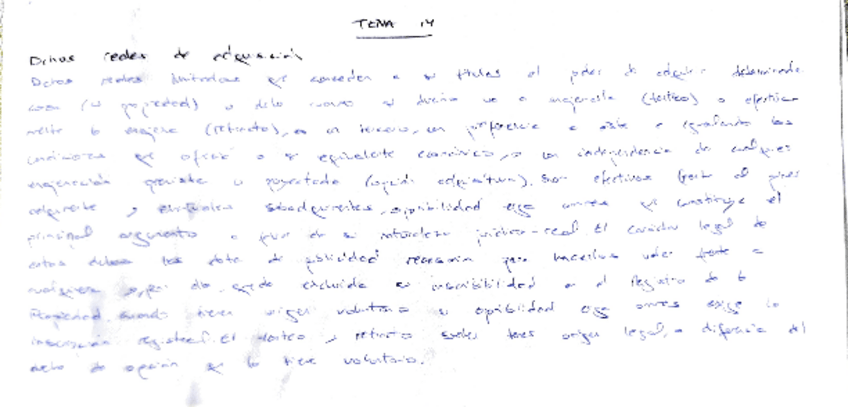 TEMA 14
Dchos reales de adquisición
Dchos reales limitados que conceden a su titular el poder de adquirir determinada
cosa (su propiedad) o dcho cuando su dueño va a enajenarla (tanteo) o efectiva
mente la enajena (retracto), a un tercero, con preferencia a este e igualando las
condiciones que ofreció o su equivalente económico, o con independencia de cualquier
enajenación prevista o proyectada (opción adquisitiva). Son efectivos frente al
adquirente y eventuales subadquirentes, oponibilidad erga omnes que constituye el
principal argumento a favor de su naturaleza jurídico-real. El carácter legal de
estos dchos los dota de publicidad necesaria para hacerlos valer frente a
cualquiera y, por ello, queda excluida su inscribibilidad en el Registro de la
Propiedad. Cuando tienen origen voluntario su oponibilidad erga omnes exige la
inscripción registral. El tanteo y retracto suelen tener origen legal, a diferencia del
dcho de opción que lo tiene voluntario.